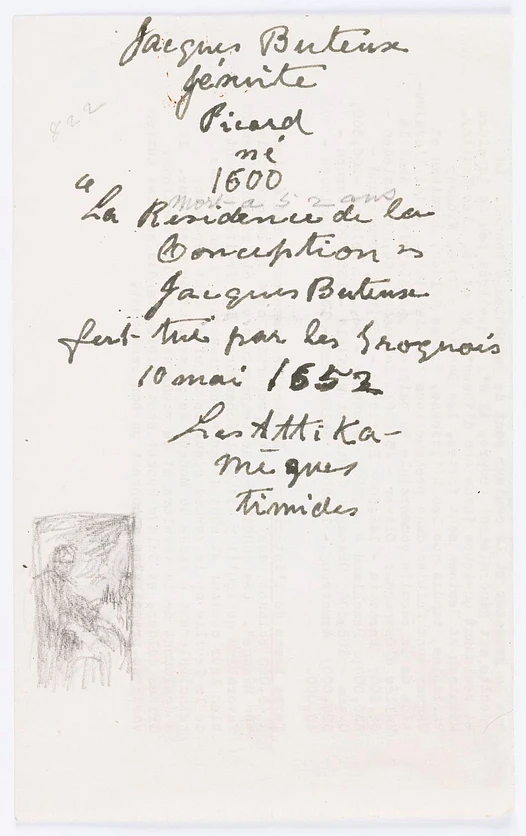 Jacques Buteux
Jésuite
822
Picard
né
1600
mort à 52 ans
"La Résidence de la
Conception"
Jacques Buteux
fut tué par les Iroquois
10 mai 1652
Les Attika-
mègues
timides